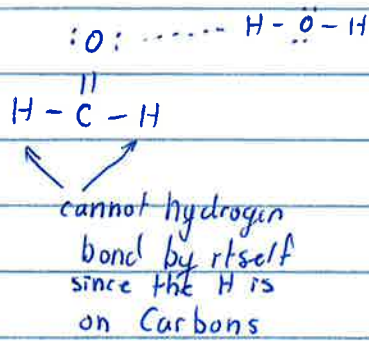 :O: ....... H - Ö - H
||
H - C - H
cannot hydrogen
bond by itself
since the H is
on Carbons